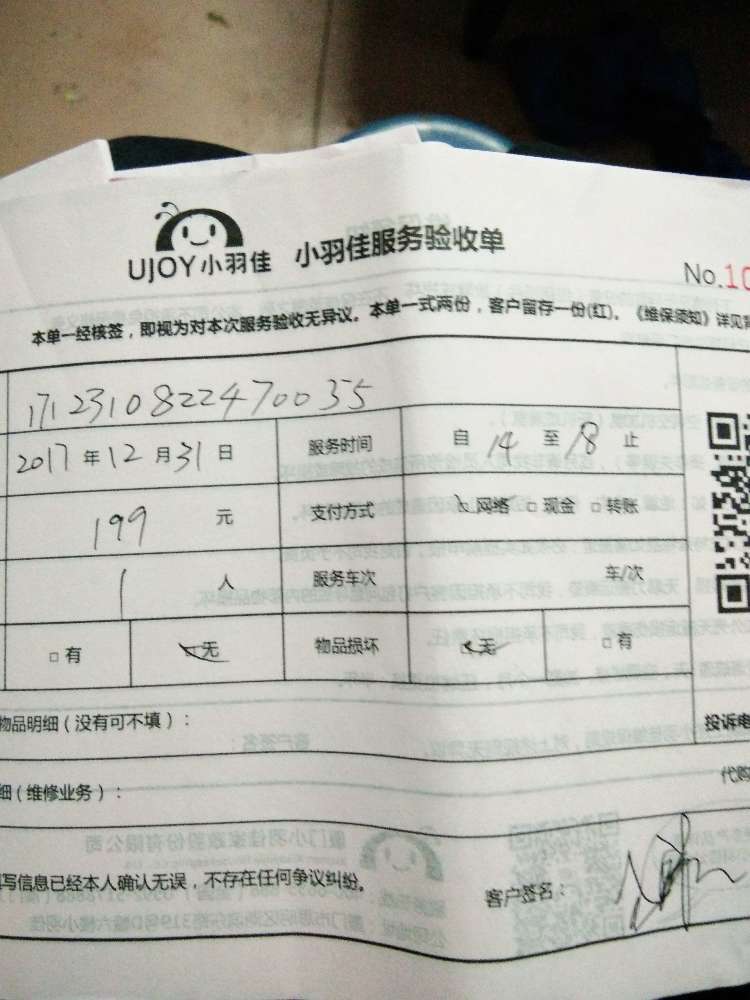 UJOY小羽佳 小羽佳服务验收单
No.10
本单一经核签，即视为对本次服务验收无异议。本单一式两份，客户留存一份(红)。《维保须知》详见背
1712310822470035
2017年12月31日 服务时间 自14至18止
199元 支付方式 网络 □现金 □转账
1人 服务车次 车/次
□有 无 物品损坏 无 □有
物品明细（没有可不填）：
投诉电
代购
细（维修业务）：
写信息已经本人确认无误，不存在任何争议纠纷。
客户签名：